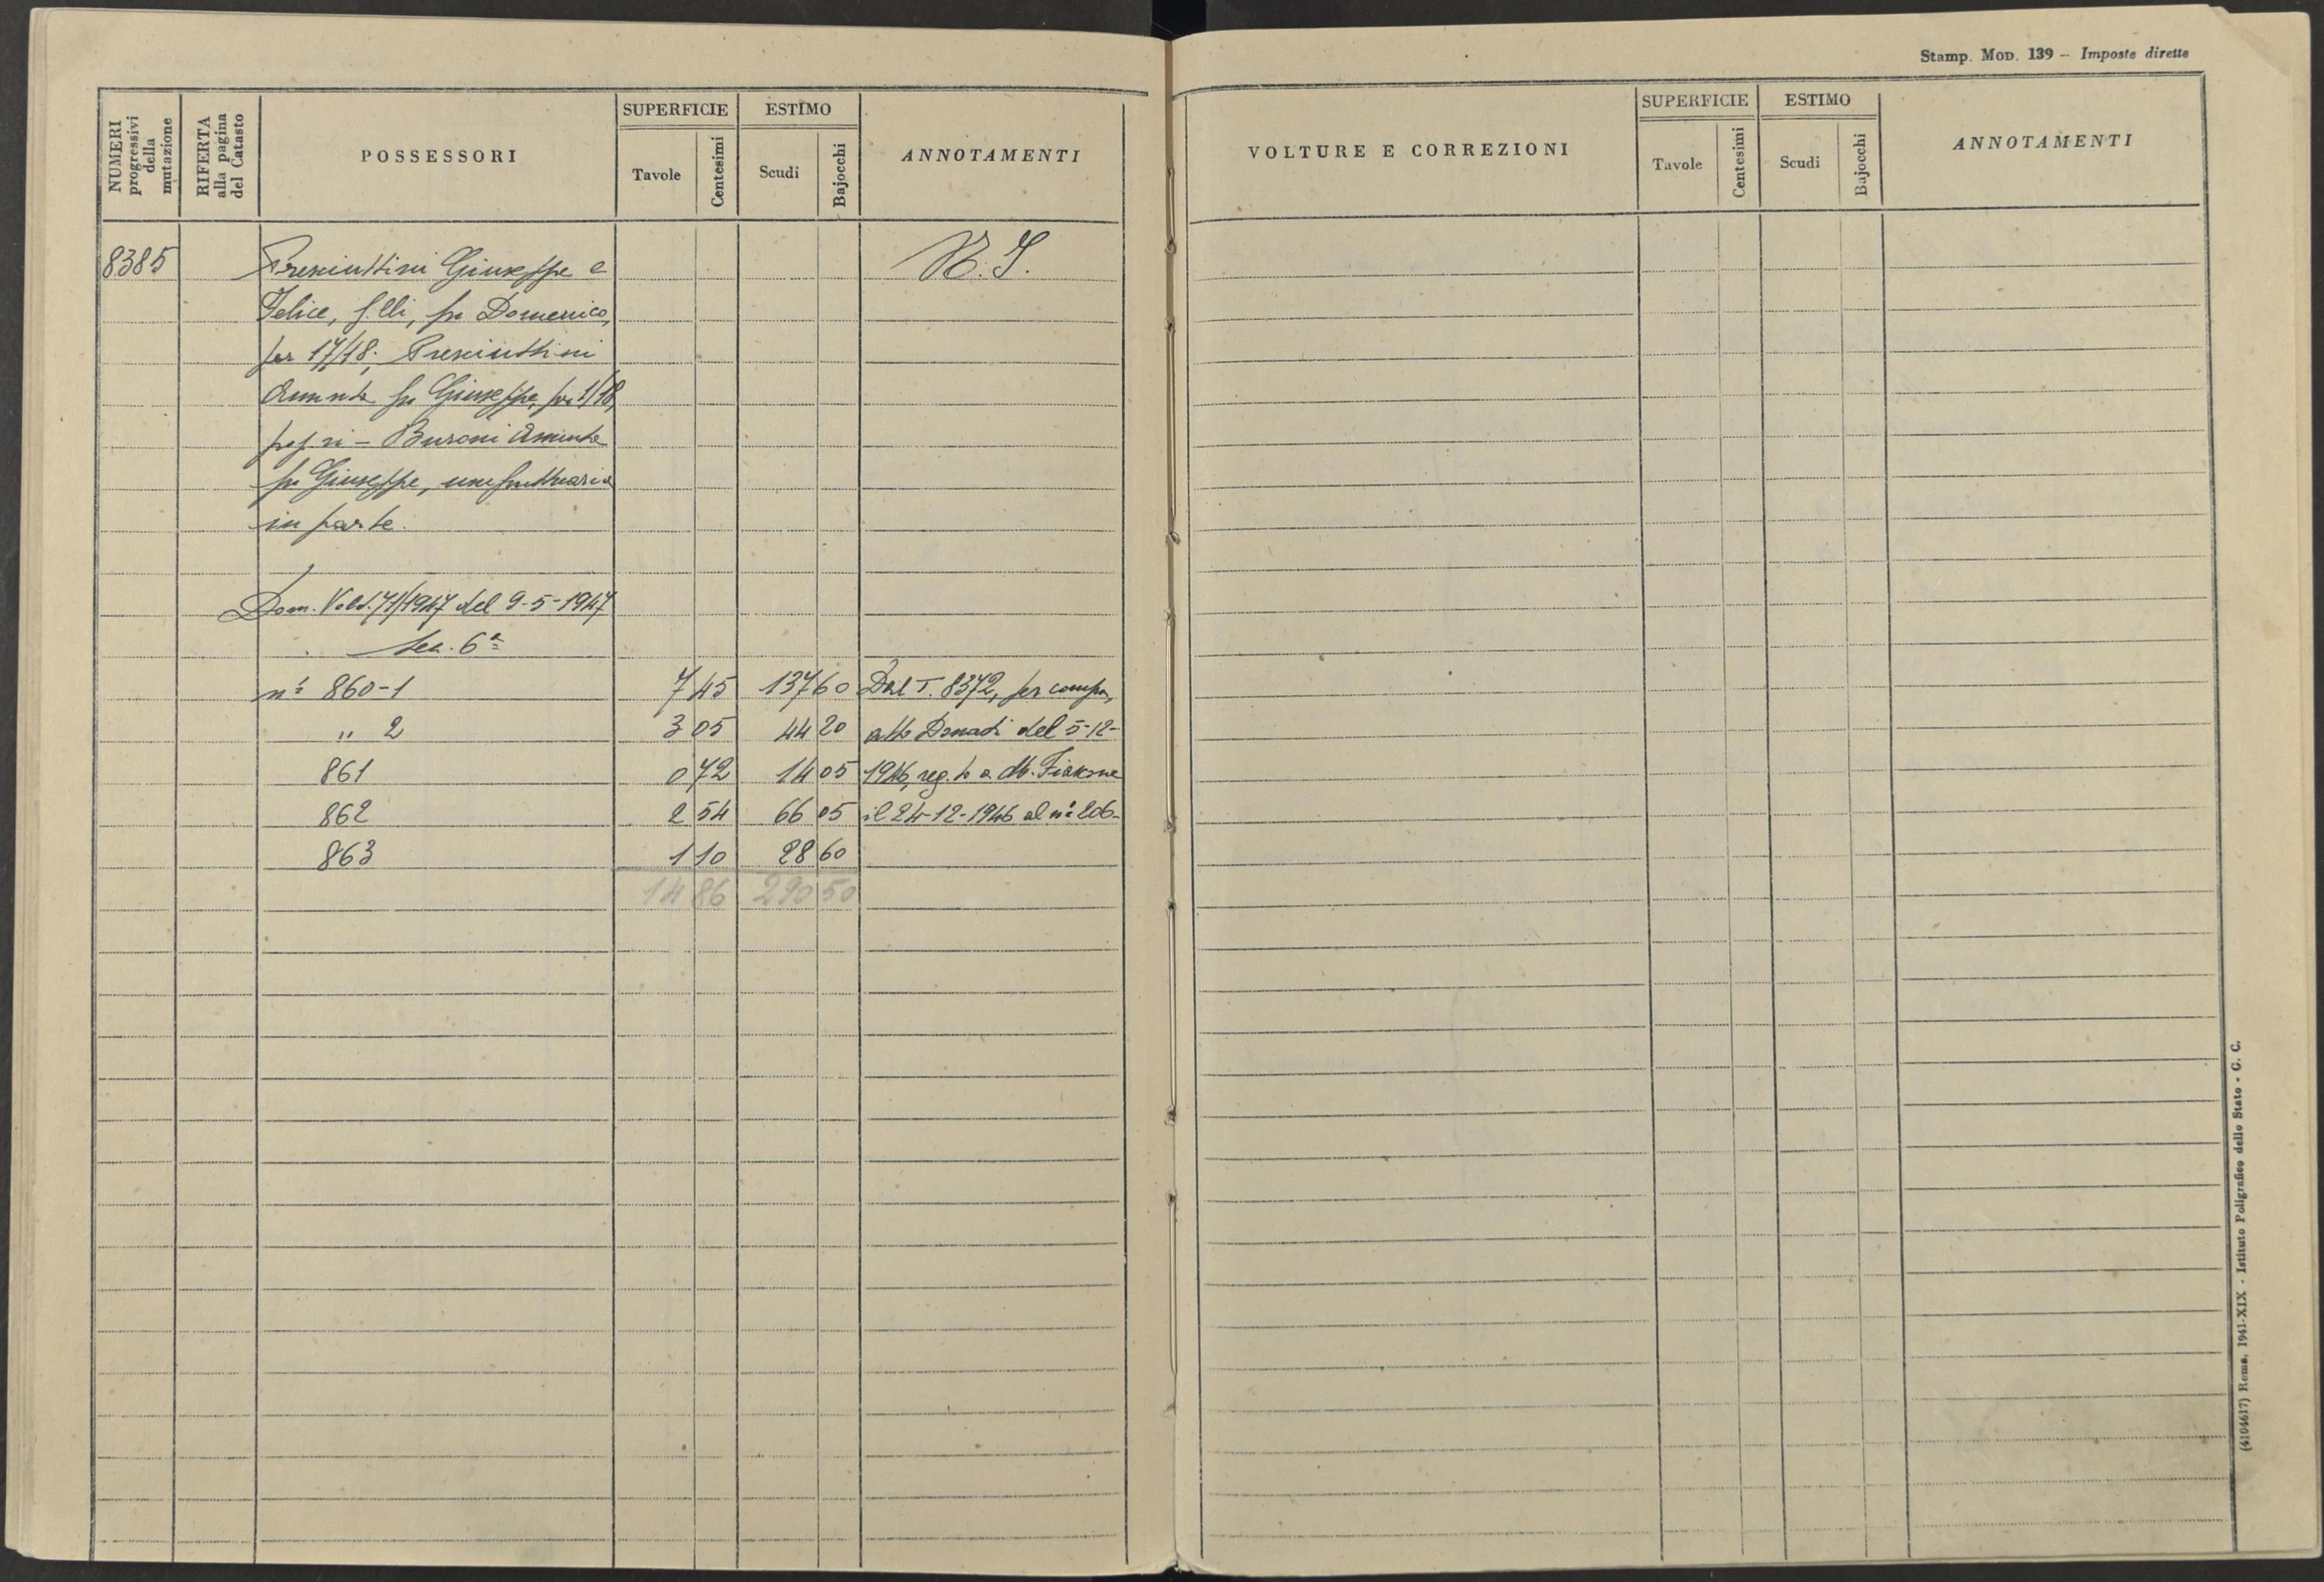 Stamp. Mod. 139 – Imposte dirette
NUMERI progressivi della mutazione
RIFERTA alla pagina del Catasto
POSSESSORI
SUPERFICIE
Tavole
Centesimi
ESTIMO
Scudi
Bajocchi
ANNOTAMENTI
VOLTURE E CORREZIONI
SUPERFICIE
Tavole
Centesimi
ESTIMO
Scudi
Bajocchi
ANNOTAMENTI
8385 Presciuttini Giuseppe e
Felice, f.lli, fu Domenico,
per 17/18; Presciuttini
fu Giuseppe, per 1/18,
prop.ri – Buroni Aminta
fu Giuseppe, usufruttuaria
in parte.
Dom. Volt. 71/1947 del 9-5-1947
Sez. 6ª
n.i 860-1 7 45 137 60 Dal T. 8372, per compra,
" 2 3 05 44 20 atto Donati del 5-12-
861 0 72 14 05 1946, reg.to a M. Fiascone
862 2 54 66 05 il 24-12-1946 al n.° 206-
863 1 10 28 60
14 86 290 50
(4104617) Roma, 1941-XIX - Istituto Poligrafico dello Stato - G. C.